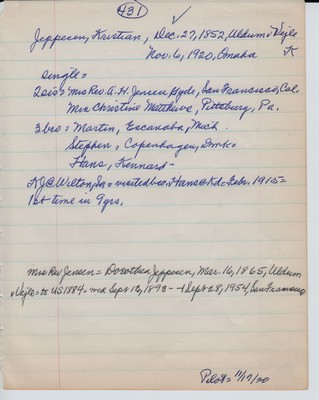 431
Jeppesen, Kristian, Dec. 27, 1852, Uldum, Vejle
Nov. 6, 1920, Omaha
single =
2 sis = Mrs Rev A. H. Jensen Hyde, San Francisco, Cal.
Mrs Christine Matthews, Pittsburg, Pa.
3 bro = Martin, Escanaba, Mich.
Stephen, Copenhagen, Dmk =
Hans, Kennard -
visited bro. Hans @ Kd = Febr. 1915 =
1st time in 9 yrs.
Mrs Rev Jensen = Dorothea Jeppesen, Mar. 16, 1865, Uldum
Vejle = to US 1884 - md Sept 12, 1893 - + Sept 28, 1954, San Francisco
Pilot = 11/17/20